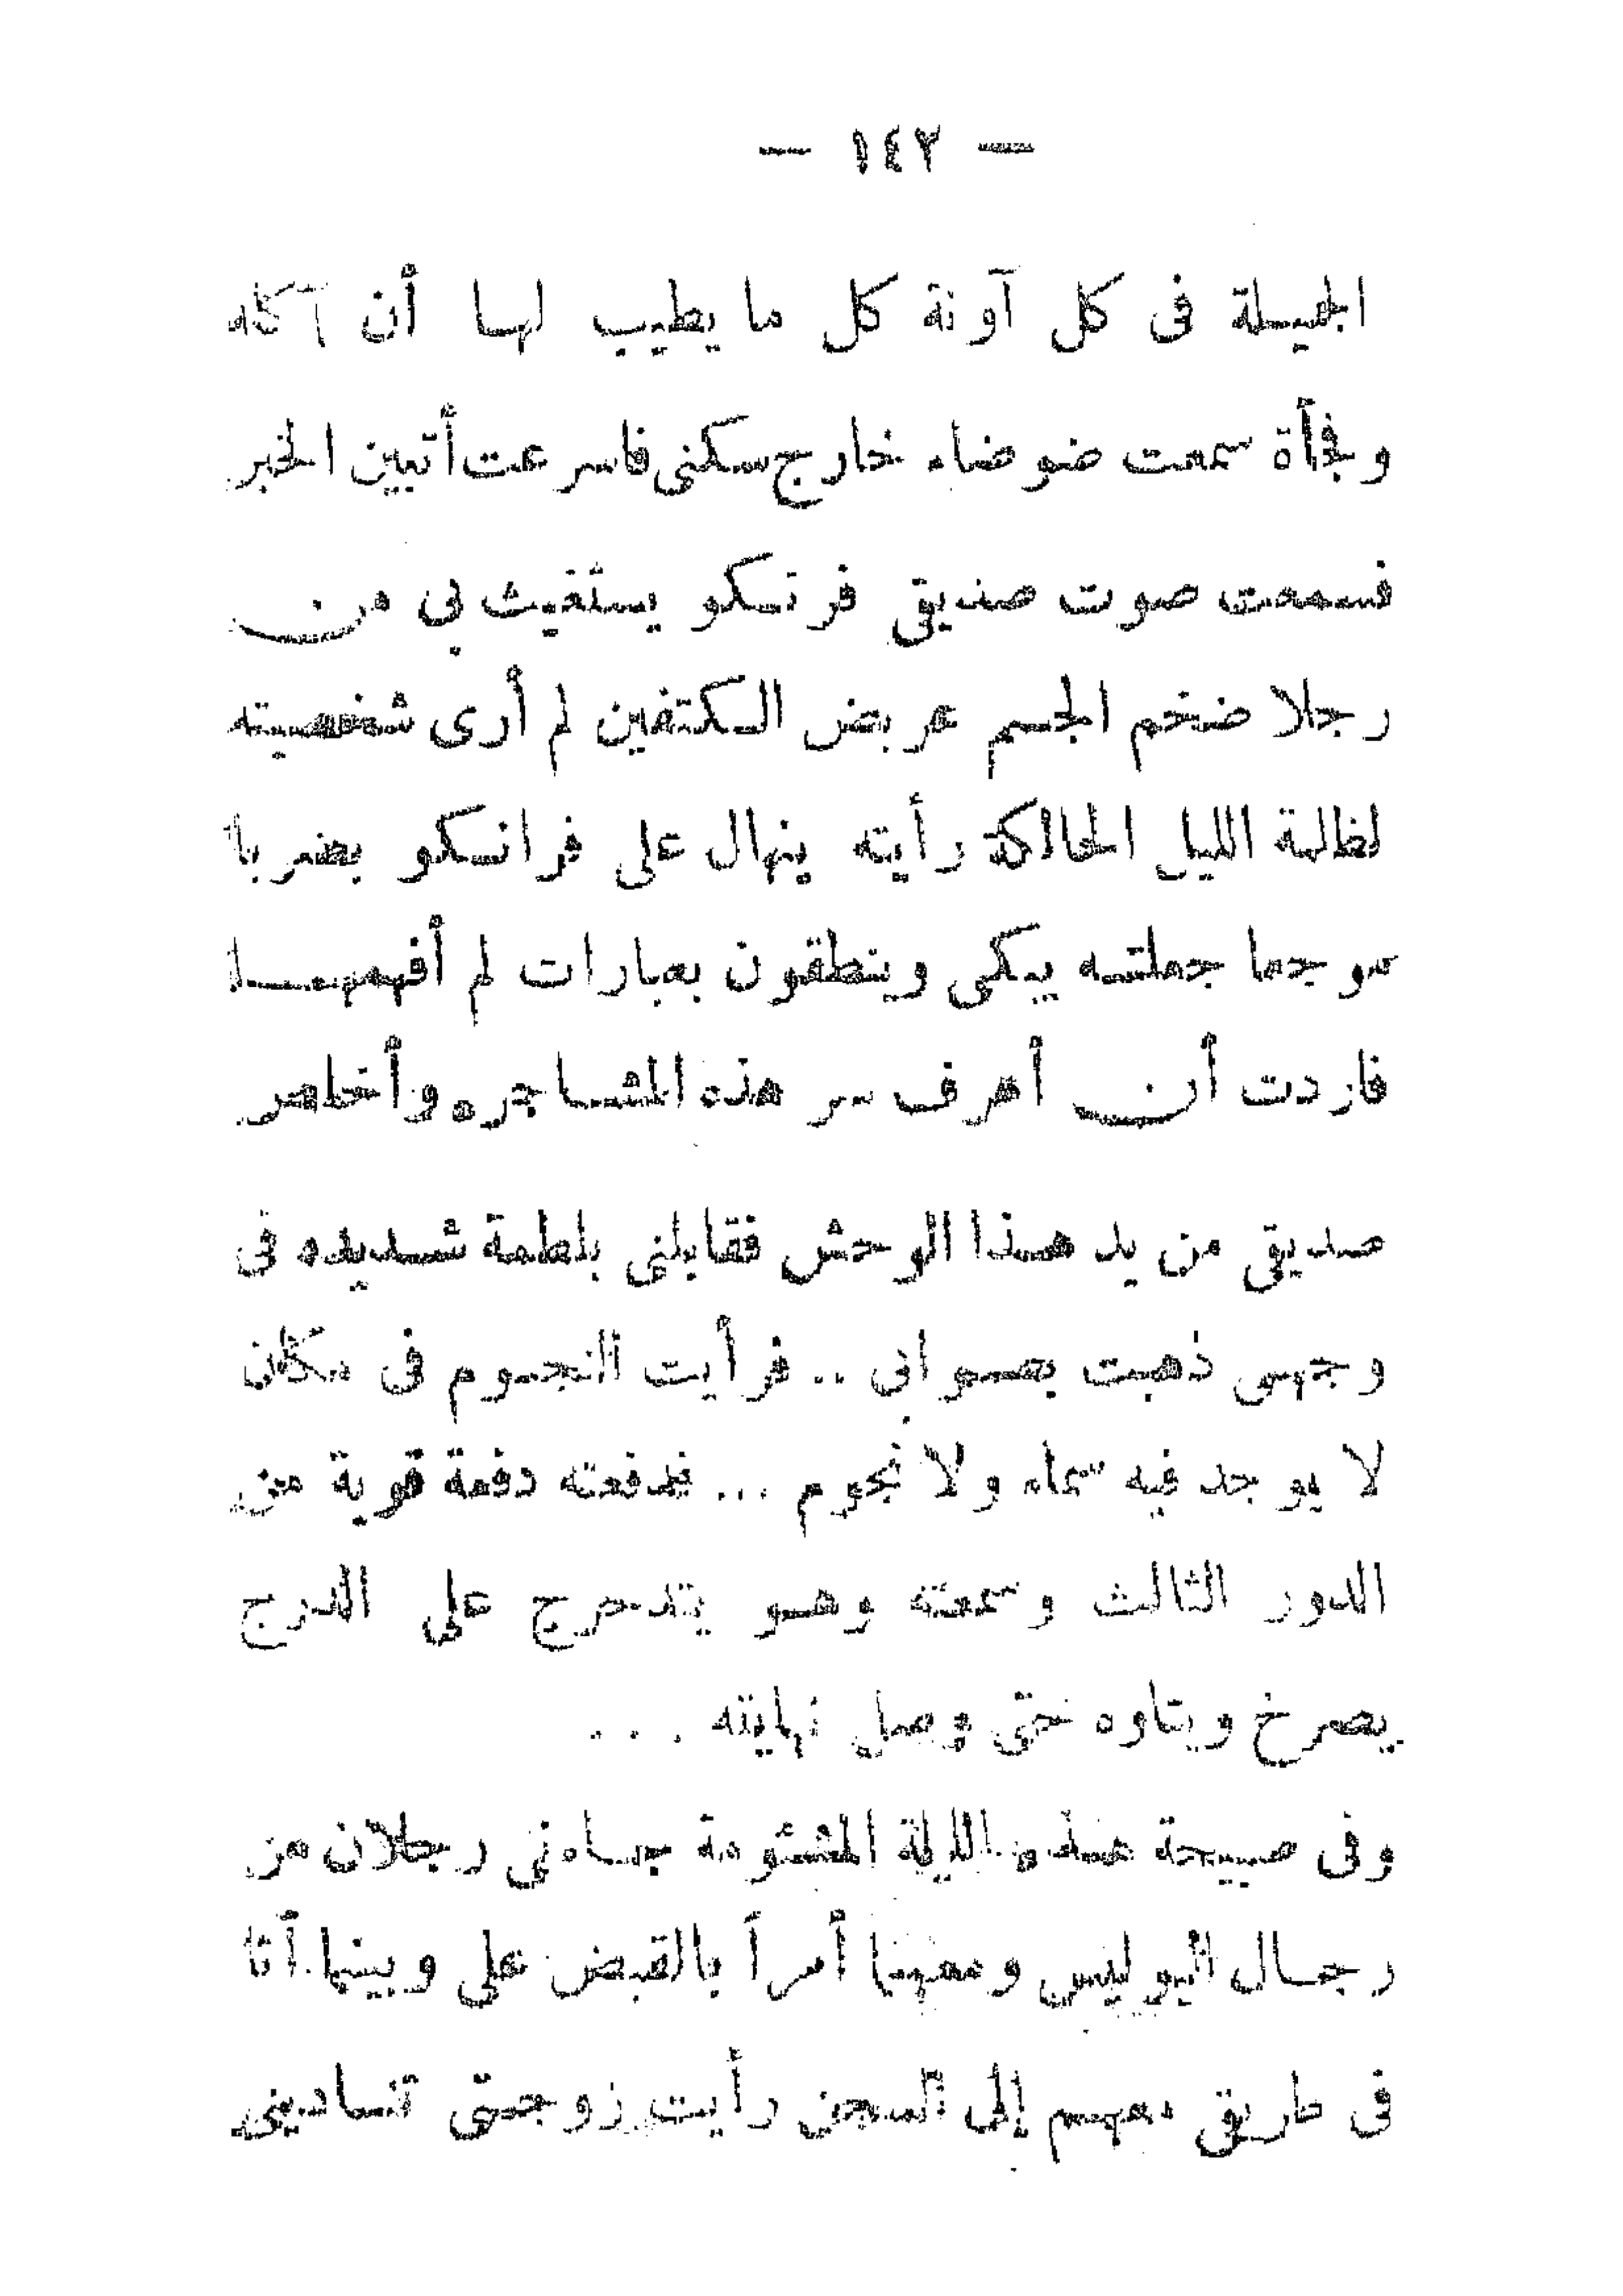 — ١٤٢ —
الجميلة فى كل آونة كل ما يطيب لها أن آكله
وفجأة سمعت ضوضاء خارج سكنى فاسرعت أتبين الخبر
فسمعت صوت صديقى فرنسكو يستغيث بى من
رجلا ضخم الجسم عريض الكتفين لم أرى شخصيته
لظلمة الليل الحالكة رأيته ينهال على فرانسكو بضربا
موجعا جعلته يبكى وينطقون بعبارات لم أفهمها
فاردت أن أعرف سر هذه المشاجره وأخلص
صديقى من يد هذا الوحش فقابلنى بلطمة شديده فى
وجهى ذهبت بصوابى .. فرأيت النجوم فى مكان
لا يوجد فيه سماء ولا نجوم ... فدفعته دفعة قوية من
الدور الثالث وسمعته وهو يتدحرج على الدرج
يصرخ ويتاوه حتى وصل نهايته . . .
وفى صبيحة هذه الليلة المشئومة جاءنى رجلان من
رجال البوليس ومعهما أمرآ بالقبض على وبينما أنا
فى طريق معهم إلى السجن رأيت زوجتى تنادينى